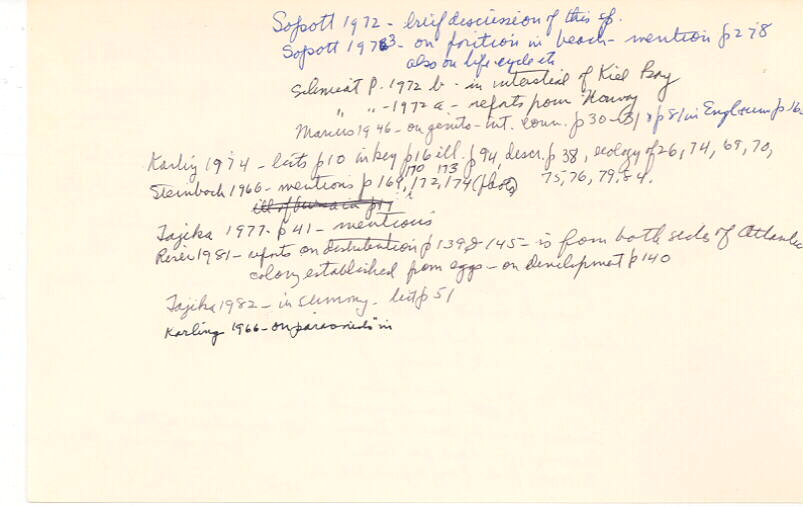 Sopott 1972 - brief discussion of this sp.
Sopott 1973 - on position in beach - mention p278
also on life-cycle etc
Schmidt P. 1972 b - in interstitial of Kiel Bay
" " - 1972 a - reports from Norway
Marcus 1946 - on genito-int. conn. p 30-31, & p 81 in Engl. sum p 16
Karling 1974 - lists p10 in key p16 ill. p94, descr. p 38, ecology of 26, 74, 69, 70,
75, 76, 79, 84.
Steinbock 1966 - mentions p 169, 170, 172, 173, 174 (photo)
Tajika 1977 - p 41 - mentions
1981 - reports on distribution p 139 & 145 - is from both sides of Atlantic
colony established from eggs - on development p 140
Tajika 1982 - in summary - list p 51
Karling 1966 - on in